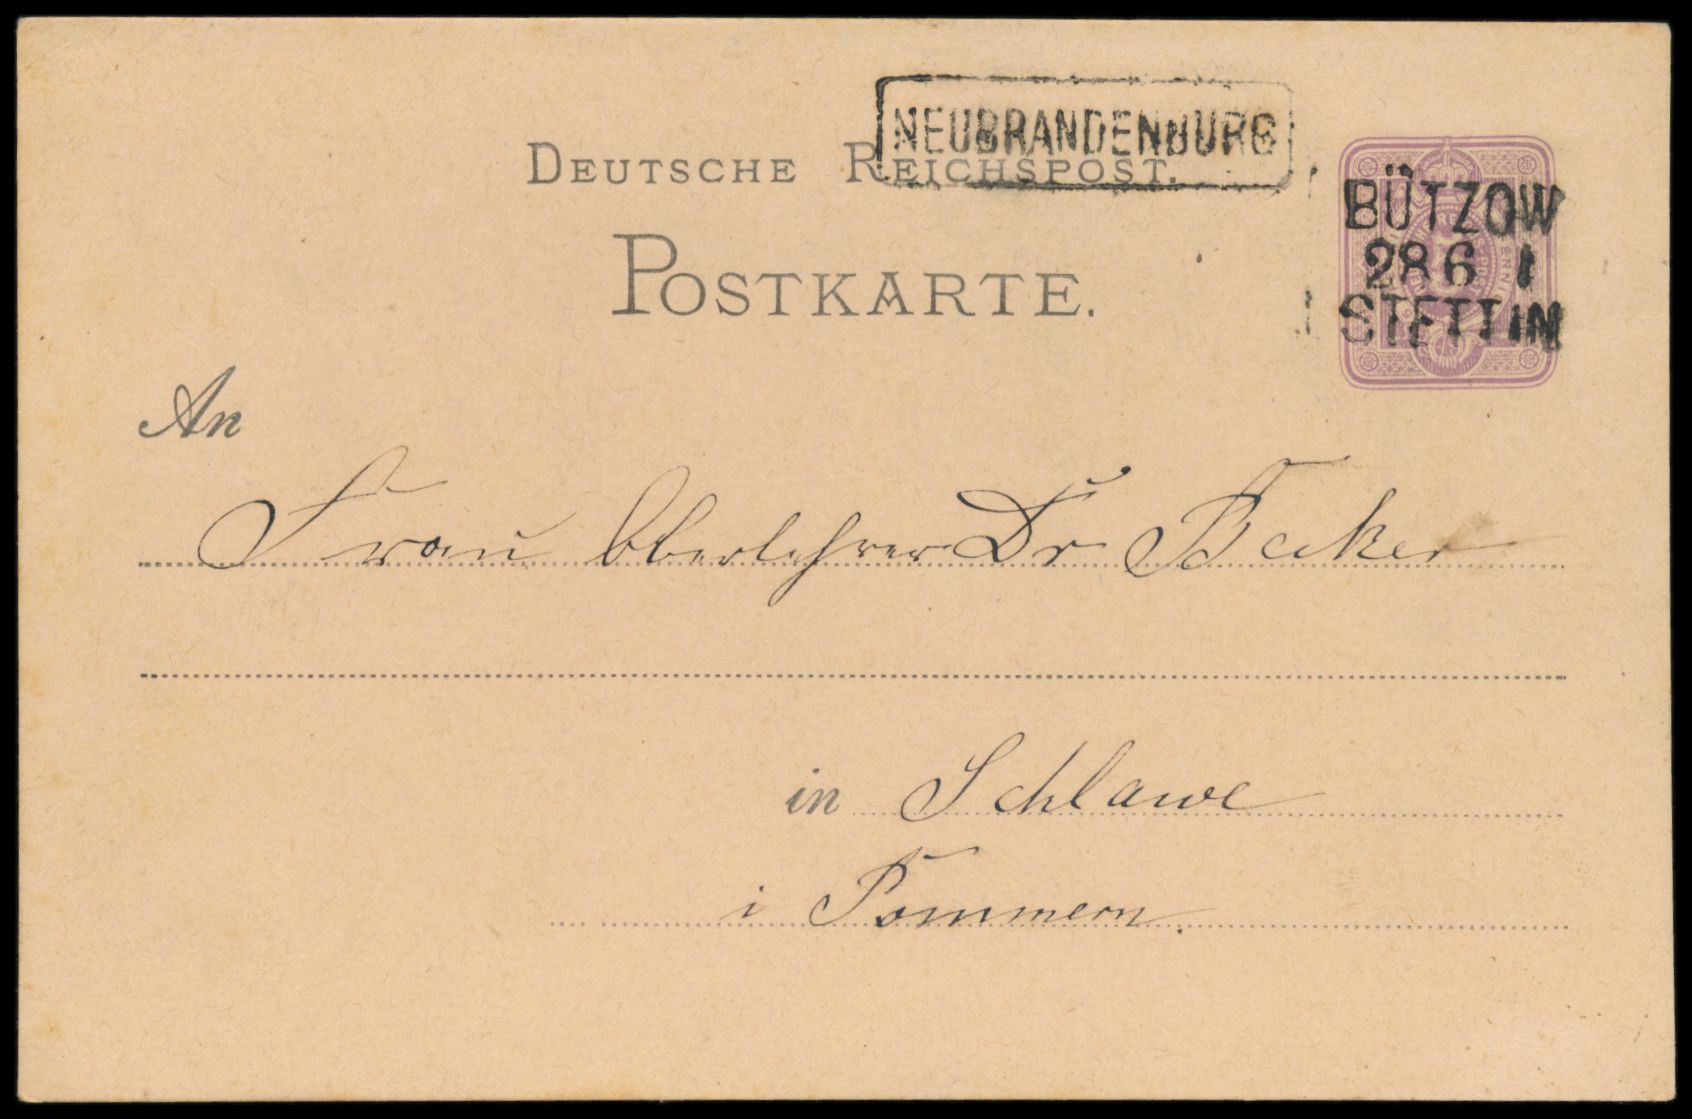 NEUBRANDENBURG
DEUTSCHE REICHSPOST.
BÜTZOW
28 6 1
STETTIN
POSTKARTE.
An
Frau Oberlehrer Dr Becker
in Schlawe
i Pommern.